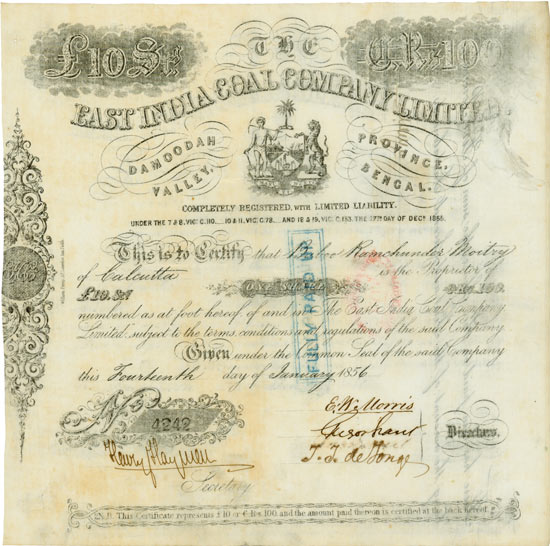 £10 Stg
THE
C.Rs 100
EAST INDIA COAL COMPANY LIMITED
DAMOODAH VALLEY.
PROVINCE, BENGAL.
COMPLETELY REGISTERED, WITH LIMITED LIABILITY.
UNDER THE 7 & 8, VIC: C.110. 10 & 11, VIC: C.78. AND 18 & 19, VIC: C.133. THE 27TH DAY OF DECR 1855.
This is to Certify that Baboo Ramchunder Moitry
of Calcutta is the Proprietor of
£10.St ONE SHARE 100.
numbered as at foot hereof of and in The East India Coal Company
Limited subject to the terms, conditions and regulations of the said Company
Given under the Common Seal of the said Company
this Fourteenth day of January 1856
FULLY PAID UP
No
4242
E. W. Morris
Directors.
Henry Hayman
Secretary
N.B. This Certificate represents £10 or C.Rs 100 and the amount paid thereon is certified at the back hereof.